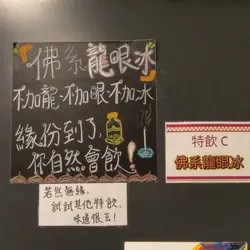 佛系龍眼冰
不加龍、不加眼、不加冰
緣份到了，
你自然會飲！
若然無緣，
試試其他特飲，
味道很正！
特飲 C
佛系龍眼冰